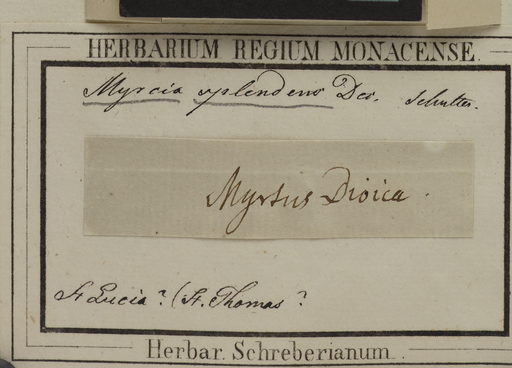 HERBARIUM REGIUM MONACENSE.
Myrcia splendens Dec. Schultes.
Myrtus Dioica.
St Lucia? (St. Thomas?
Herbar. Schreberianum.